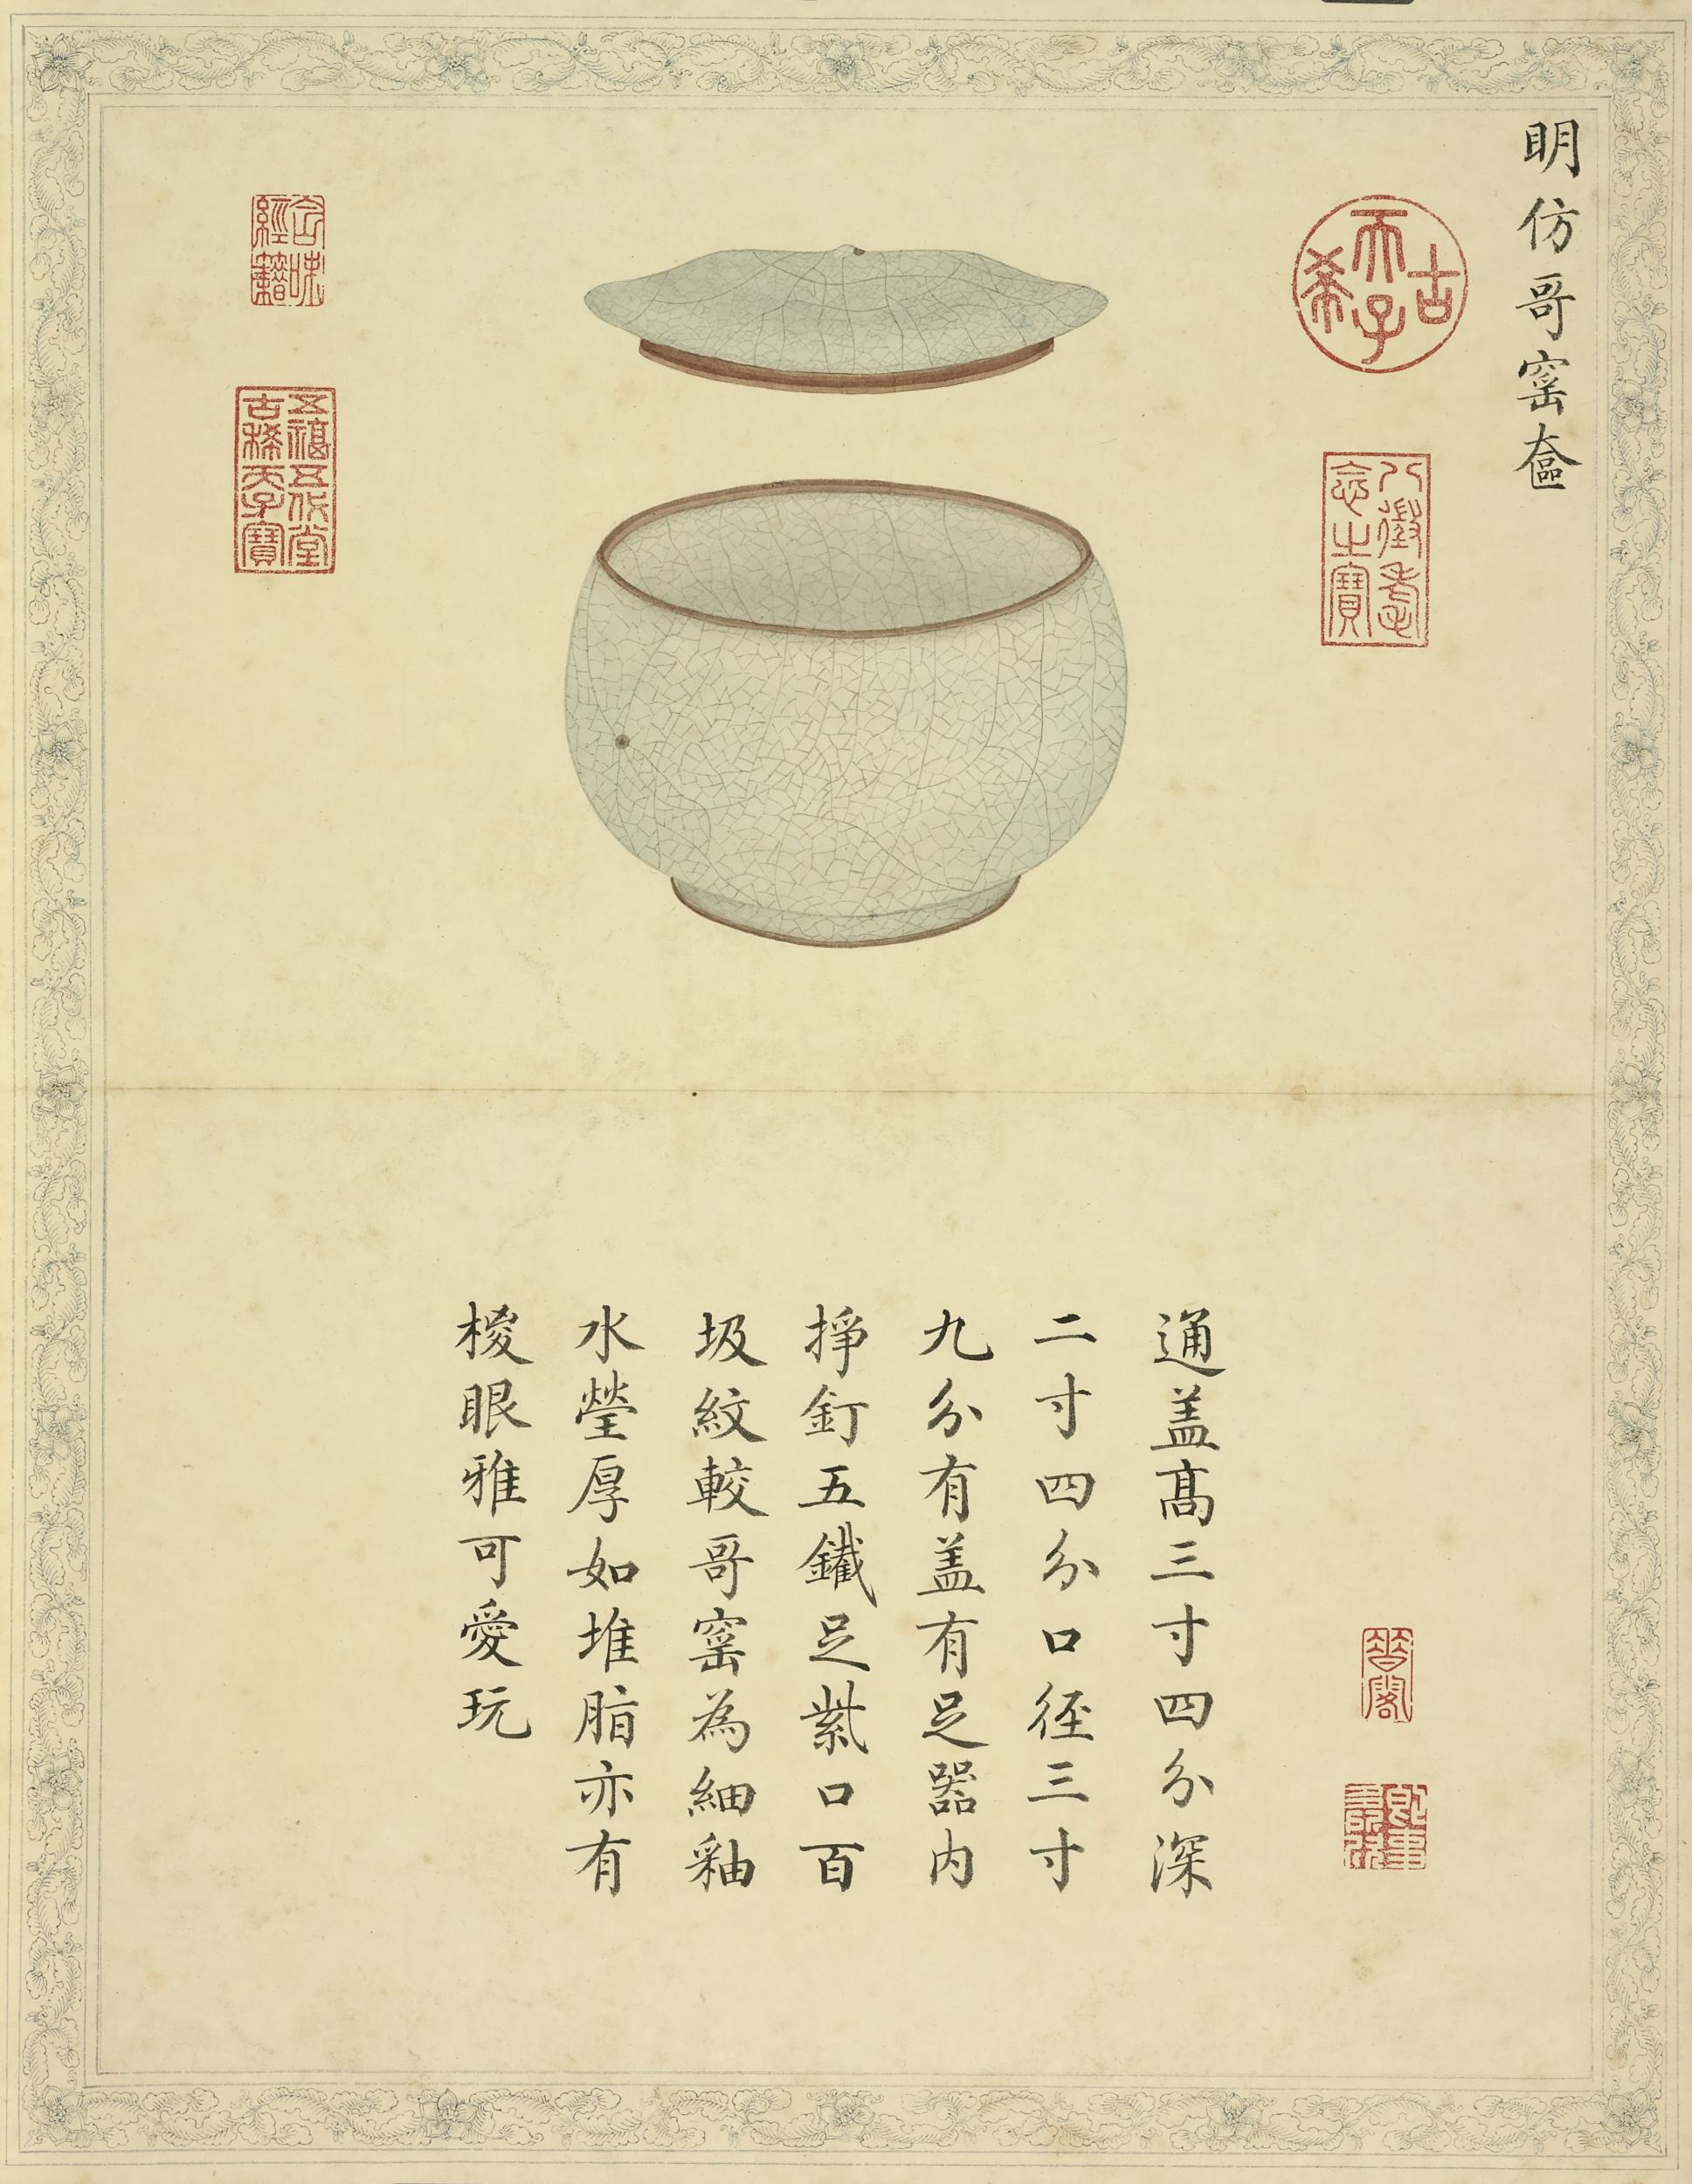 明仿哥窰奩
古
天子
希
八徵耄
念之寶
會心
經籍
五福五代堂
古稀天子寶
通盖髙三寸四分深
二寸四分口徑三寸
九分有盖有足器内
掙釘五鐵足紫口百
圾紋較哥窰為細釉
水瑩厚如堆脂亦有
椶眼雅可愛玩